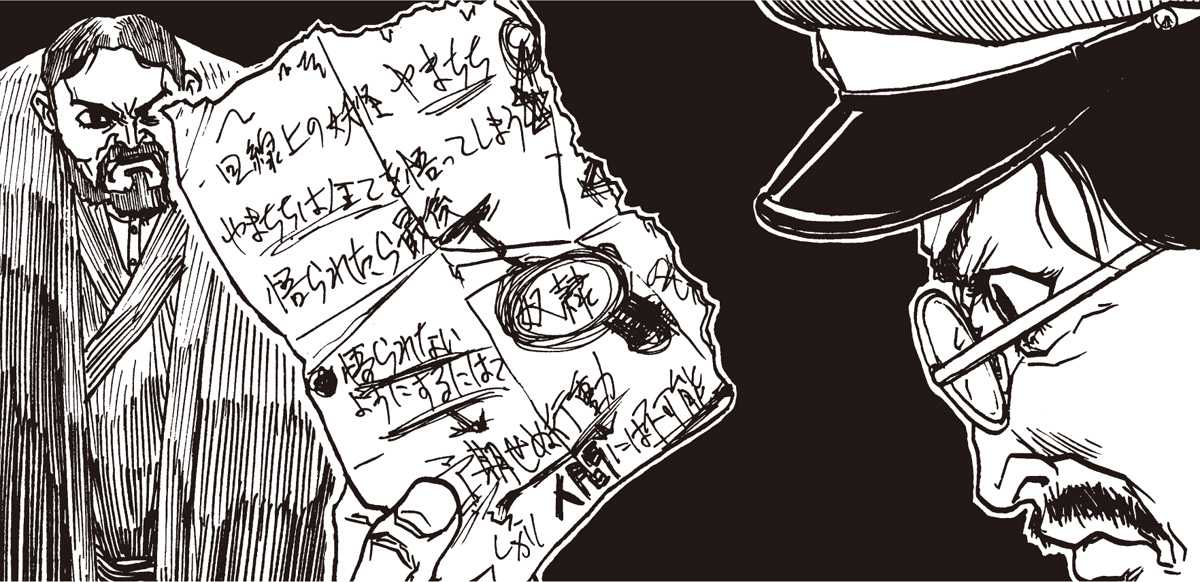 回線上の妖怪 やまちち
やまちちは全てを悟ってしまう
悟られたら最後
奴隷
悟られない
ようにするには?
予期せぬ行動
人間には不可能